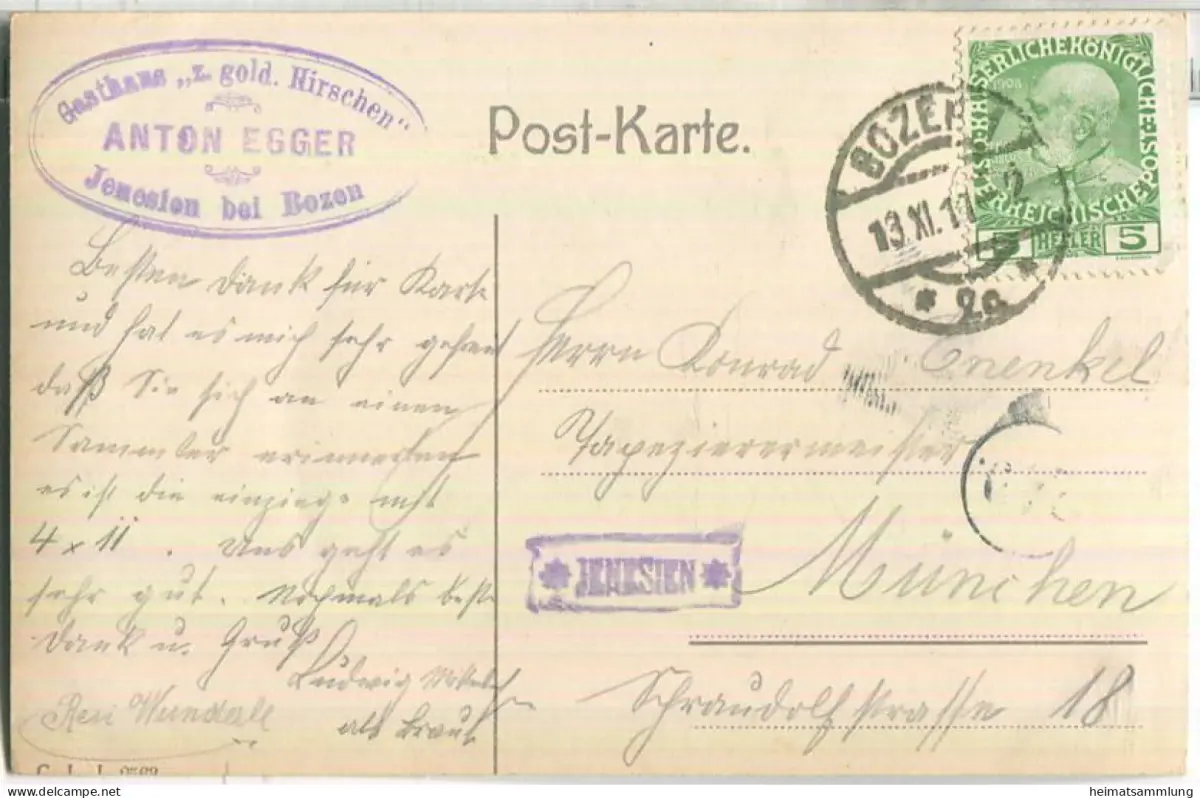 Gasthaus „z. gold. Hirschen"
ANTON EGGER
Jenesien bei Bozen
Post-Karte.
BOZEN 2
13. XI. 11
* 2a *
KAISERLICHE KÖNIGLICHE ÖSTERREICHISCHE POST
1908
5 HELLER 5
Besten Dank für Karte
und hat es mich sehr gefreut
daß Sie sich an einen
Sammler erinnerten
es ist die einzige mit
4 x 11. Uns geht es
sehr gut. Nochmals besten
Dank u. Gruß
Ludwig
Resi Wunderle
als Braut
Herrn Konrad Enenkel
Tapezierermeister
* JENESIEN *
München
Schraudolfstrasse 18
heimatsammlung
delcampe.net